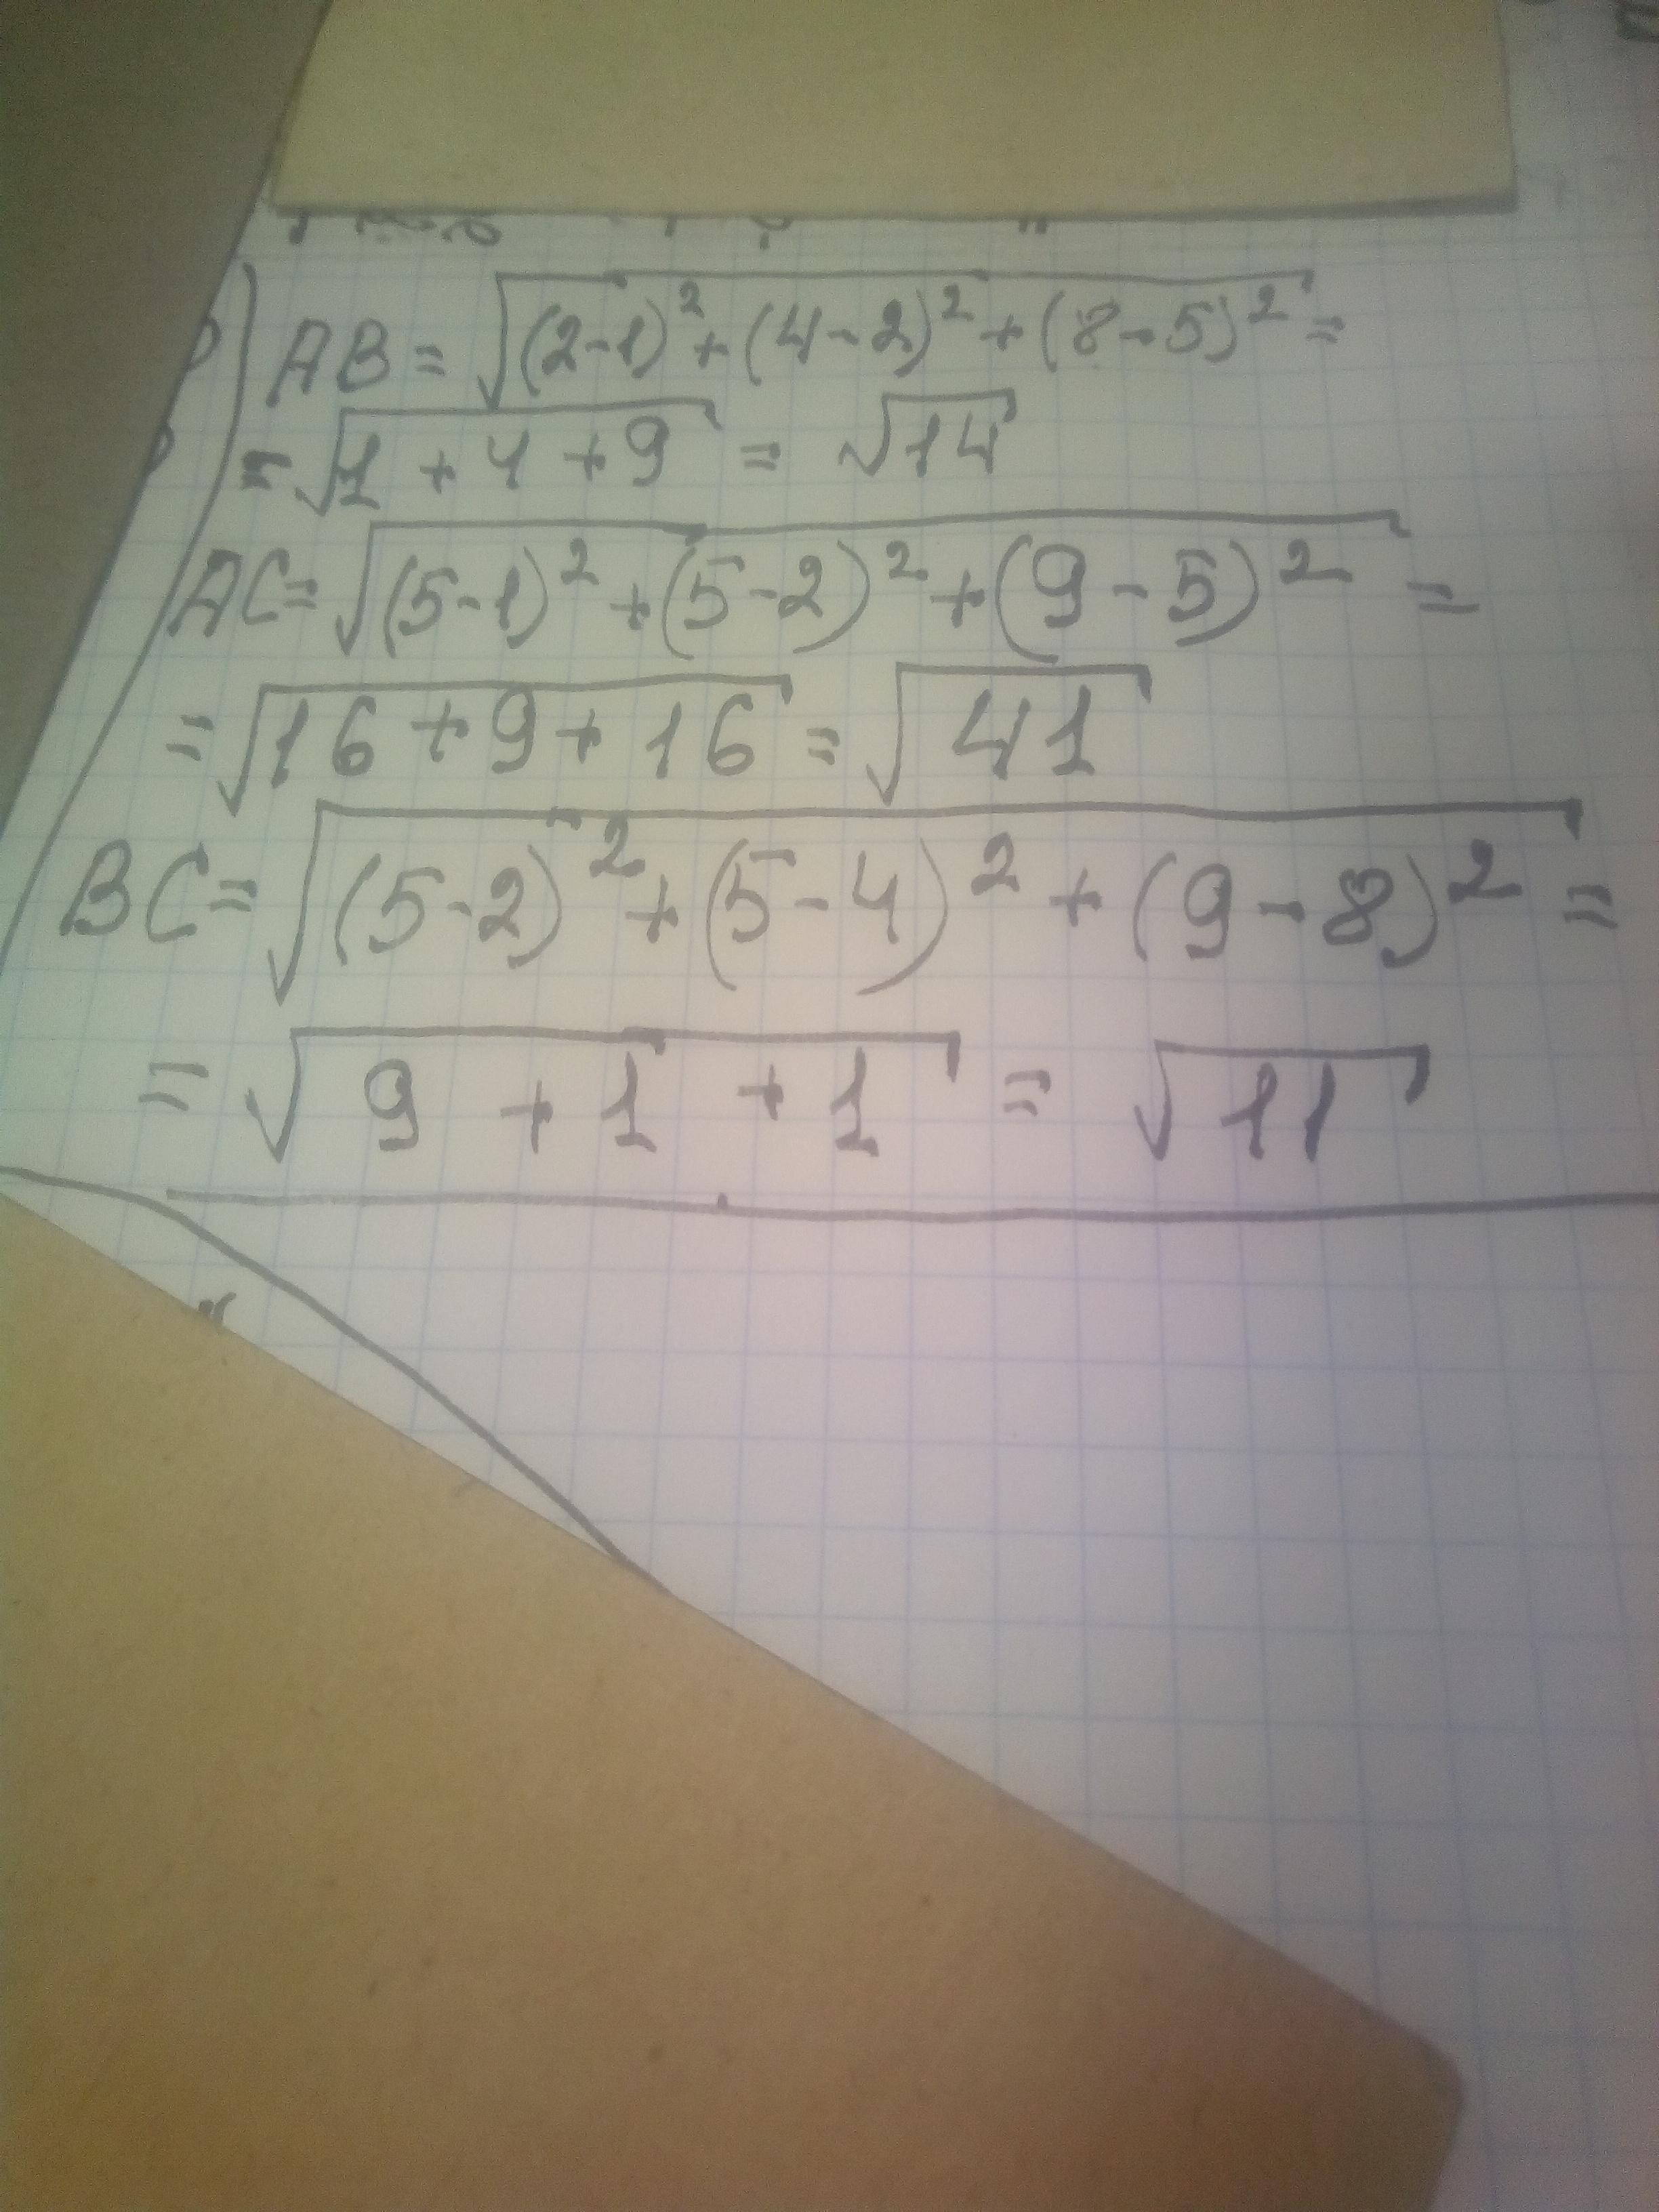 AB = √(2-1)² + (4-2)² + (8-5)² =
= √1 + 4 + 9 = √14
AC = √(5-1)² + (5-2)² + (9-5)² =
= √16 + 9 + 16 = √41
BC = √(5-2)² + (5-4)² + (9-8)² =
= √9 + 1 + 1 = √11